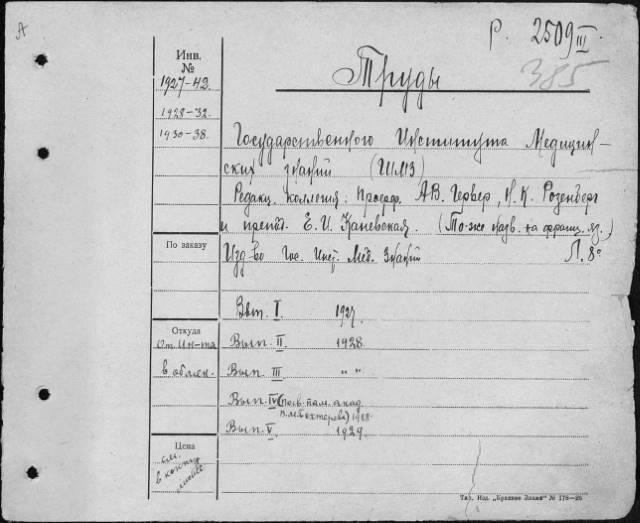 А
Р. 2509 III
385
Инв.
№
1927-42
1928-32
1930-38
Труды
Государственного Института Медицин-
ских знаний (ГИМЗ)
Редакц. коллегия: Профф. А.В. Гервер, К. Розенберг
и препод. Е. И. Каневская. (То-же назв. на франц. яз.)
По заказу
Изд-во Гос. Инст. Мед. Знаний Л. 8°
Вып. I. 1927.
Откуда
От Ин-та
в обмен.
Вып. II. 1928.
Вып. III " "
Вып. IV (посв. пам. акад.
В.М. Бехтерева) 1928
Вып. V. 1929.
Цена
см.
в конце
Тип. Изд. „Красное Знамя" № 178—25